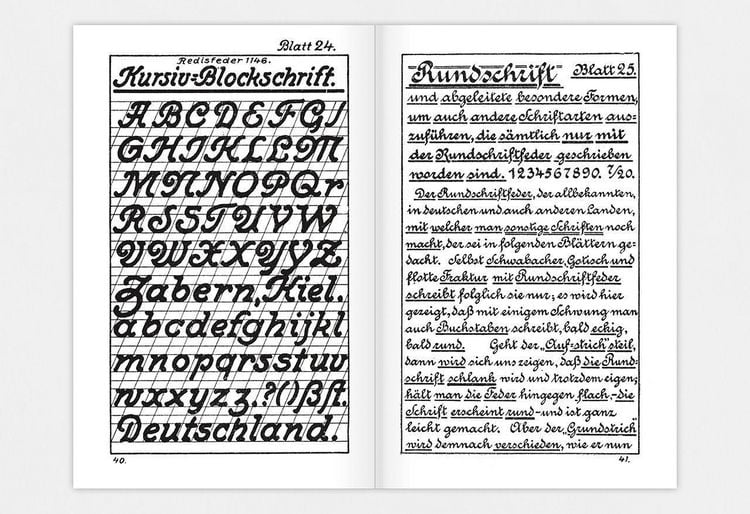 Blatt 24.
Redisfeder 1146.
Kursiv=Blockschrift.
ABCDEFGI
GHIJKLLM
MNNOPQr
RSSTUVW
UWXXYYZ
Zabern, Kiel.
abcdefghijkl
mnopqrsstuv
wxxyzz.?()ßſt.
Deutschland.
40.
Rundschrift Blatt 25.
und abgeleitete besondere Formen,
um auch andere Schriftarten aus=
zuführen, die sämtlich nur mit
der Rundschriftfeder geschrieben
worden sind. 1234567890. 7/20.
Der Rundschriftfeder, der allbekannten,
in deutschen und auch anderen Landen,
mit welcher man sonstige Schriften noch
macht, der sei in folgenden Blättern ge=
dacht. Selbst Schwabacher, Gotisch und
flotte Fraktur mit Rundschriftfeder
schreibt folglich sie nur; es wird hier
gezeigt, daß mit einigem Schwung man
auch Buchstaben schreibt, bald eckig,
bald rund. Geht der „Auf=strich" steil,
dann wird sich uns zeigen, daß die Rund=
schrift schlank wird und trotzdem eigen;
hält man die Feder hingegen flach,-die
Schrift erscheint rund-und ist ganz
leicht gemacht. Aber der „Grundstrich"
wird demnach verschieden, wie er nun
41.